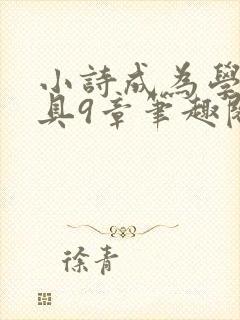 小詩成為學
具9章筆趣閣
徐青